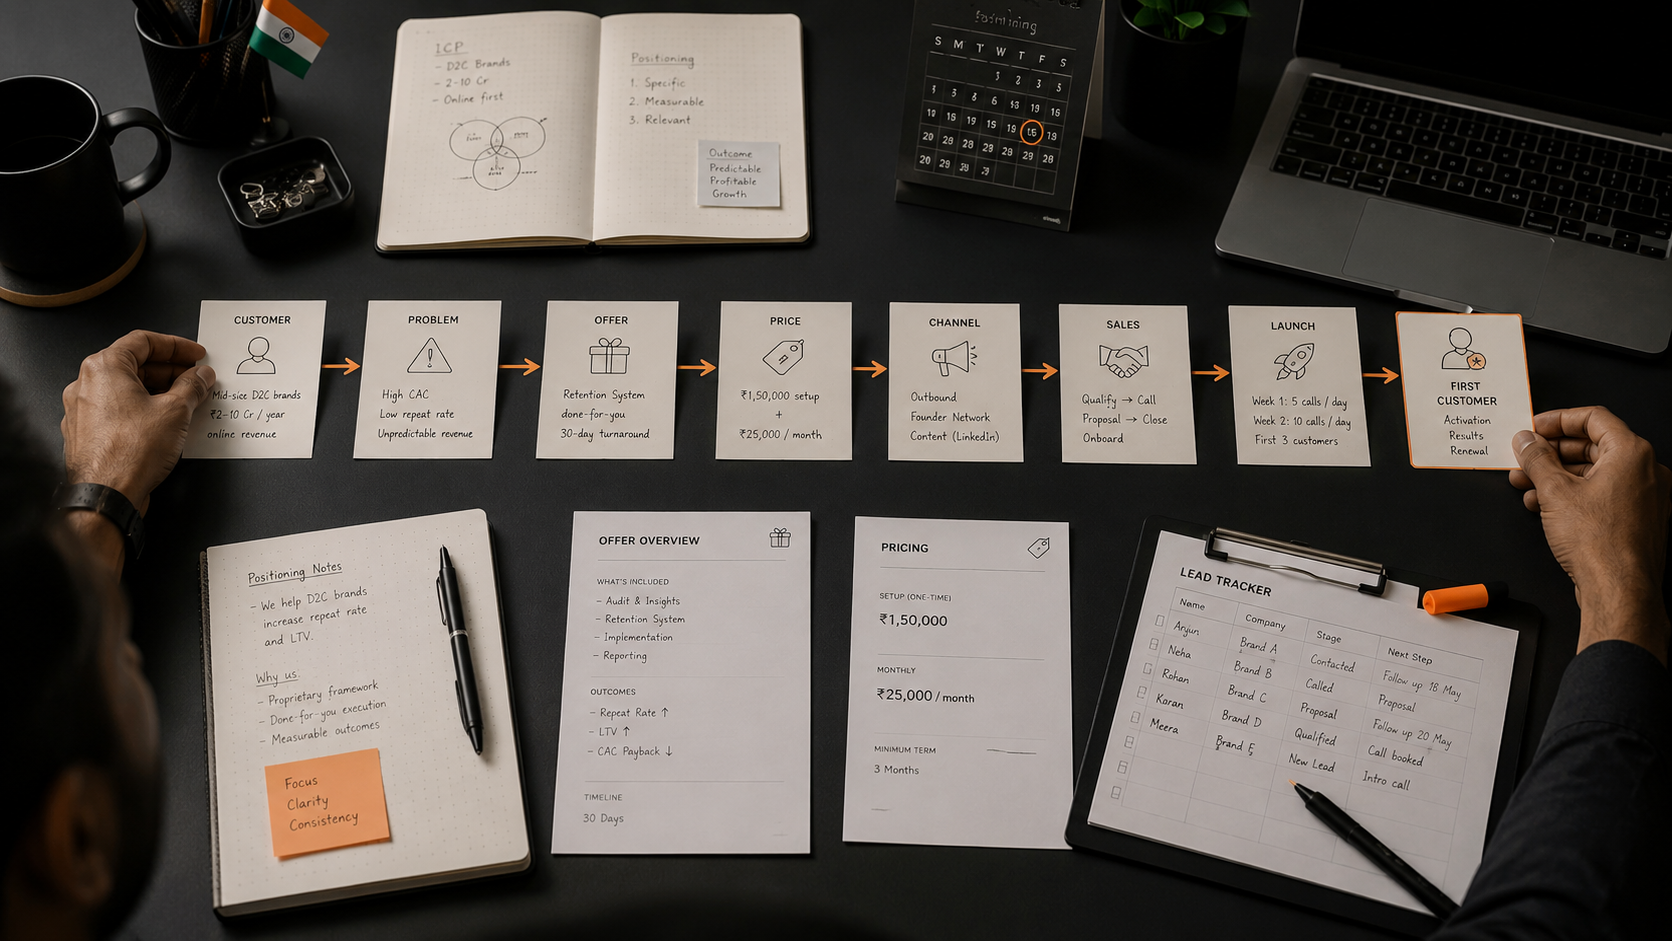 ICP
- D2C Brands
- 2-10 Cr
- Online first
Positioning
1. Specific
2. Measurable
3. Relevant
Outcome
Predictable
Profitable
Growth
S M T W T F S
CUSTOMER
Mid-size D2C brands
₹2-10 Cr / year
online revenue
PROBLEM
High CAC
Low repeat rate
Unpredictable revenue
OFFER
Retention System
done-for-you
30-day turnaround
PRICE
₹1,50,000 setup
+
₹25,000 / month
CHANNEL
Outbound
Founder Network
Content (LinkedIn)
SALES
Qualify → Call
Proposal → Close
Onboard
LAUNCH
Week 1: 5 calls / day
Week 2: 10 calls / day
First 3 customers
FIRST
CUSTOMER
Activation
Results
Renewal
Positioning Notes
- We help D2C brands
increase repeat rate
and LTV.
Why us
- Proprietary framework
- Done-for-you execution
- Measurable outcomes
Focus
Clarity
Consistency
OFFER OVERVIEW
WHAT'S INCLUDED
- Audit & Insights
- Retention System
- Implementation
- Reporting
OUTCOMES
- Repeat Rate ↑
- LTV ↑
- CAC Payback ↓
TIMELINE
30 Days
PRICING
SETUP (ONE-TIME)
₹1,50,000
MONTHLY
₹25,000 / month
MINIMUM TERM
3 Months
LEAD TRACKER
Name Company Stage Next Step
Arjun Brand A Contacted Follow up 18 May
Neha Brand B Called Proposal
Rohan Brand C Proposal Follow up 20 May
Karan Brand D Qualified Call booked
Meera Brand E New Lead Intro call